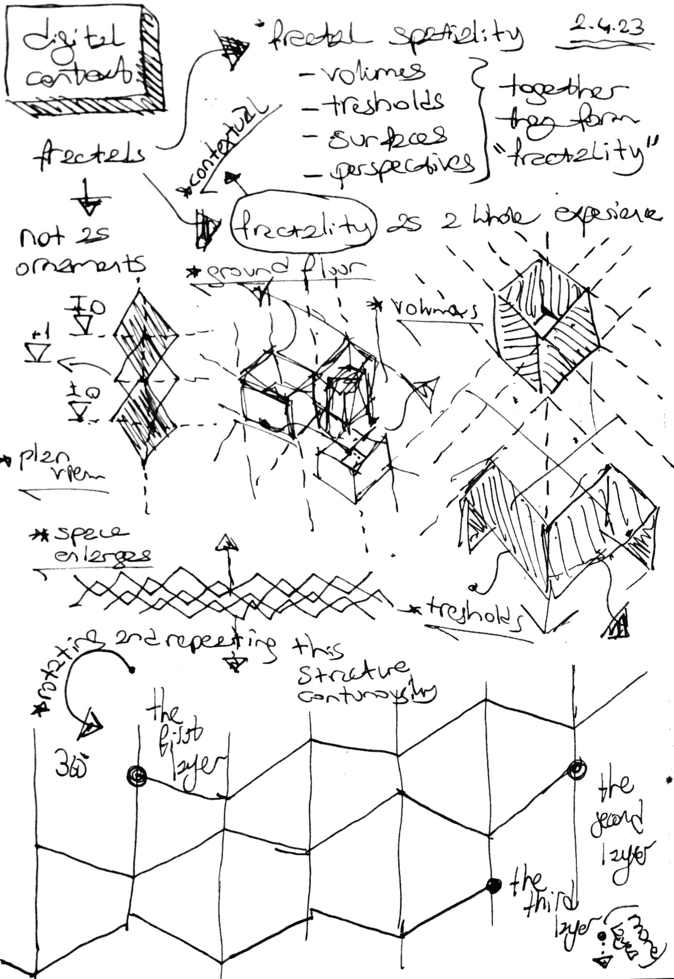 digital
context
*fractal spatiality
2.4.23
- volumes
- tresholds
- surfaces
- perspectives
together
they form
"fractality"
*contextual
fractals
fractality as a whole experience
not as
ornaments
*ground floor
*volumes
±0
+1
±0
*plan
view
*space
enlarges
*tresholds
*rotating and repeating this
structure
contunously
360°
the
first
layer
the
second
layer
the
third
layer